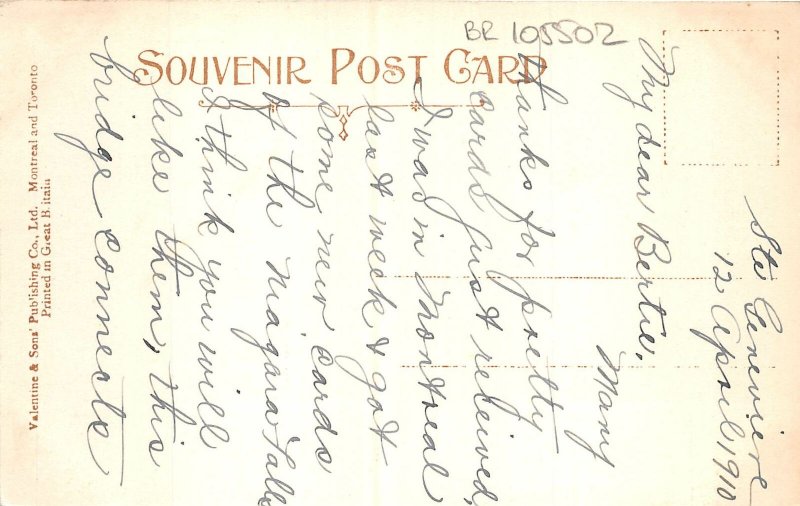 BR 105502
SOUVENIR POST CARD
Valentine & Sons' Publishing Co., Ltd. Montreal and Toronto
Printed in Great Britain
Ste Genevieve
12 April 1910
My dear Bertie,
Many
thanks for pretty
cards just received,
I was in Montreal
last week & got
some new cards
of the Niagara Falls
I think you will
like them, this
bridge connects